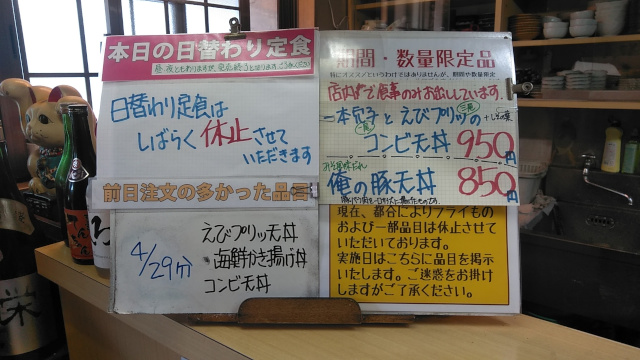 本日の日替わり定食
日替わり定食は
しばらく休止させて
いただきます
前日注文の多かった品書
4/29分
えびプリッ天丼
海鮮かき揚げ丼
コンビ天丼
期間・数量限定品
店内で食事のみお出ししています。
一本穴子とえびプリッの
コンビ天丼 950円
俺の豚天丼 850円
現在、都合によりフライもの
および一部品目は休止させて
いただいております。
実施日はこちらに品目を掲示
いたします。ご迷惑をお掛け
しますがご了承ください。
栄